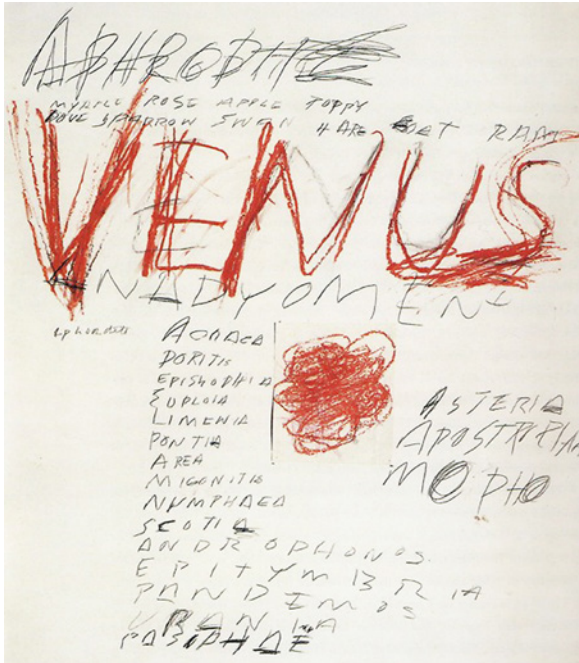 APHRODITE
MYRTLE ROSE APPLE POPPY
DOVE SPARROW SWAN HARE RAM
VENUS
ANADYOMENE
ACRAEA
DORITIS
EPISKOPHIA
EUPLOIA
LIMENIA
PONTIA
AREA
MIGONITIS
NYMPHAEA
SCOTIA
ANDROPHONOS
EPITYMBRIA
PANDIMOS
URANIA
PASIPHAE
ASTERIA
APOSTROPHIA
MOPHO